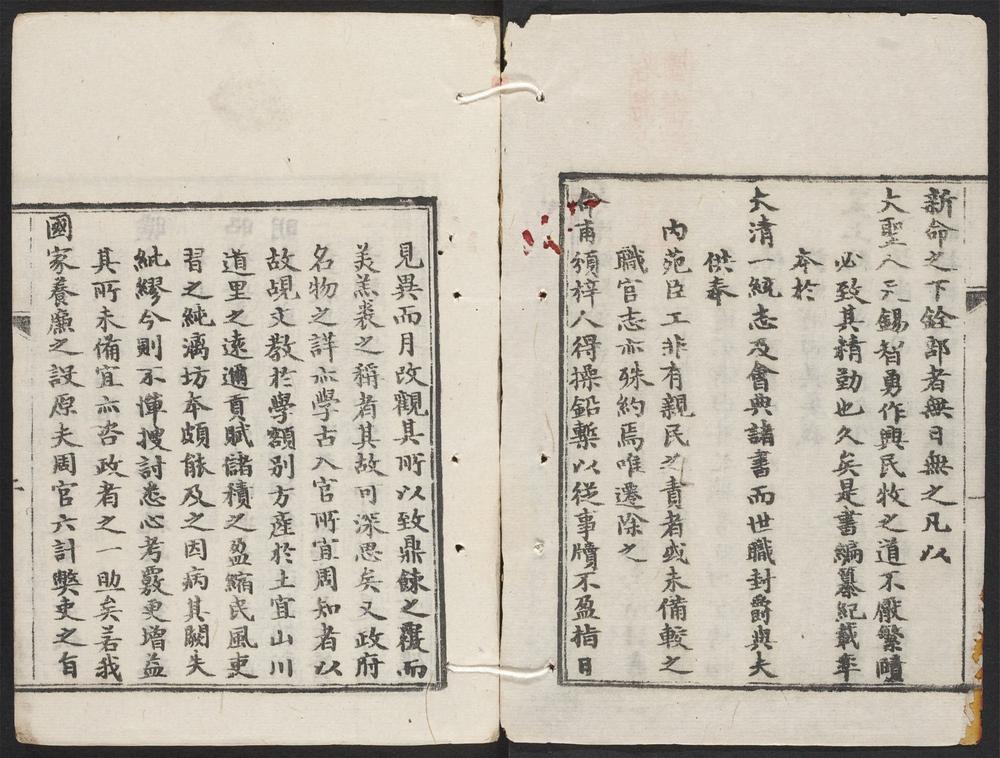 新命之下銓部者無日無之凡以
大聖人天錫智勇作興民牧之道不厭繁賾
必致其精勤也久矣是書編纂紀載率
本於
大清一統志及會典諸書而世職封爵與夫
供奉
內苑臣工非有親民之責者或未備較之
職官志亦殊約焉唯遷除之
命甫頒梓人得操鉛槧以從事牘不盈指日
見異而月改觀其所以致鼎餗之覆而
羙羔裘之稱者其故可深思矣又政府
名物之詳亦學古入官所宜周知者以
故覘文教於學額別方產於土宜山川
道里之遠邇貢賦諸積之盈縮民風吏
習之純漓坊本頗能及之因病其闕失
紕繆今則不憚搜討悉心考覈更增益
其所未備宜亦咨政者之一助矣若我
國家養廉之設原夫周官六計弊吏之旨